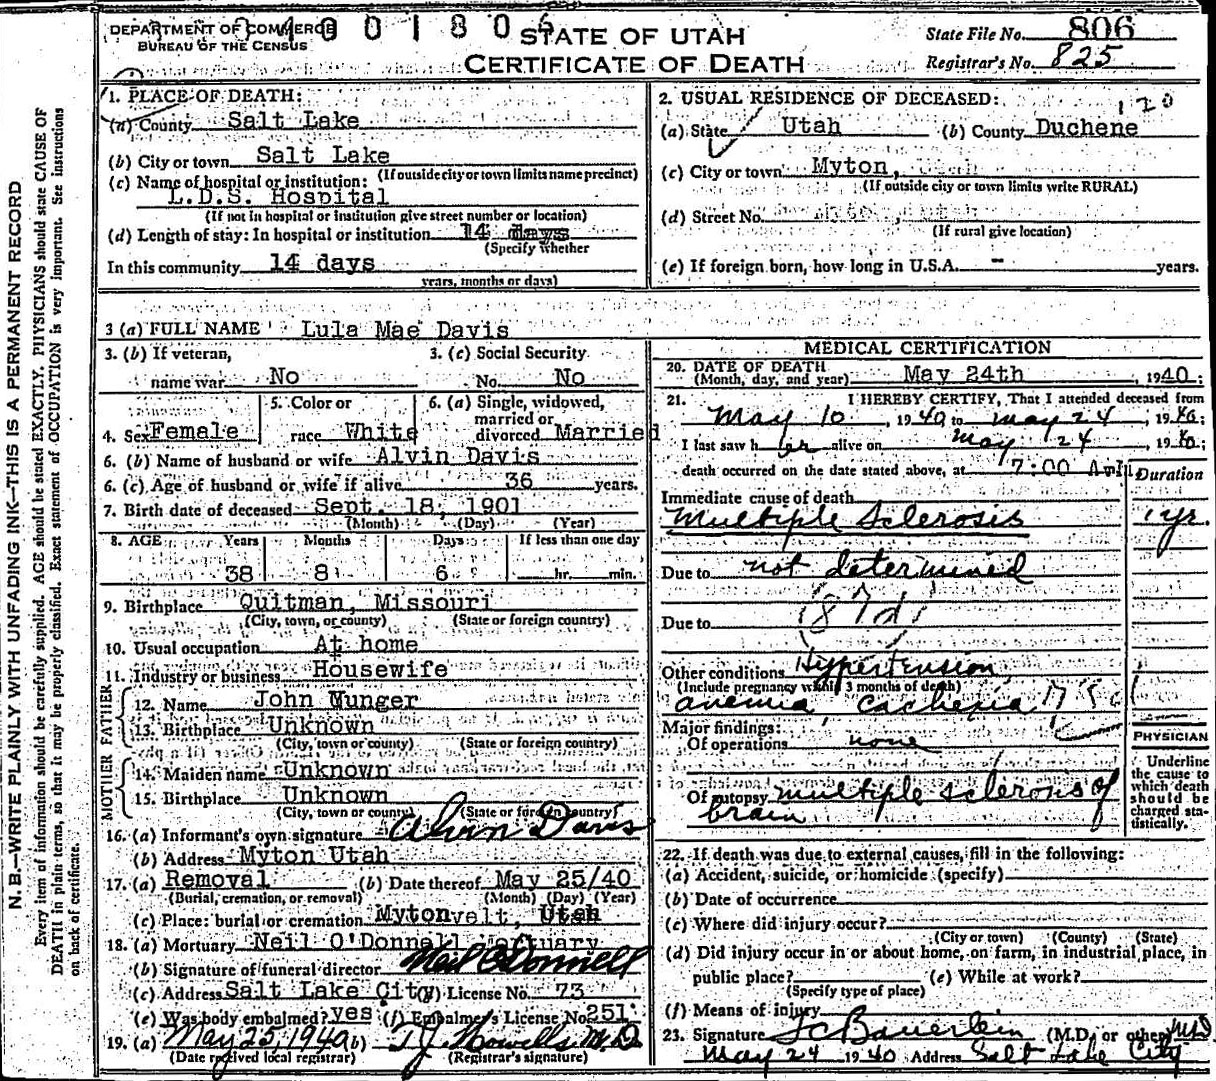 DEPARTMENT OF COMMERCE
BUREAU OF THE CENSUS
STATE OF UTAH
CERTIFICATE OF DEATH
State File No. 806
Registrar's No. 825
N.B.—WRITE PLAINLY WITH UNFADING INK—THIS IS A PERMANENT RECORD
Every item of information should be carefully supplied. AGE should be stated EXACTLY. PHYSICIANS should state CAUSE OF
DEATH in plain terms, so that it may be properly classified. Exact statement of OCCUPATION is very important. See instructions
on back of certificate.
1. PLACE OF DEATH:
(a) County Salt Lake
(b) City or town Salt Lake
(If outside city or town limits name precinct)
(c) Name of hospital or institution:
L.D.S. Hospital
(If not in hospital or institution give street number or location)
(d) Length of stay: In hospital or institution 14 days
(Specify whether
In this community 14 days
years, months or days)
2. USUAL RESIDENCE OF DECEASED: 120
(a) State Utah (b) County Duchene
(c) City or town Myton,
(If outside city or town limits write RURAL)
(d) Street No.
(If rural give location)
(e) If foreign born, how long in U.S.A. - years.
3 (a) FULL NAME Lula Mae Davis
3. (b) If veteran, name war No
3. (c) Social Security No. No
4. Sex Female
5. Color or race White
6. (a) Single, widowed, married or divorced Married
6. (b) Name of husband or wife Alvin Davis
6. (c) Age of husband or wife if alive 36 years.
7. Birth date of deceased Sept. 18, 1901
(Month) (Day) (Year)
8. AGE Years Months Days If less than one day
38 8 6 hr. min.
9. Birthplace Quitman, Missouri
(City, town, or county) (State or foreign country)
10. Usual occupation At home
11. Industry or business Housewife
FATHER
12. Name John Munger
13. Birthplace Unknown
(City, town or county) (State or foreign country)
MOTHER
14. Maiden name Unknown
15. Birthplace Unknown
(City, town or county) (State or foreign country)
16. (a) Informant's own signature Alvin Davis
(b) Address Myton Utah
17. (a) Removal (b) Date thereof May 25/40
(Burial, cremation, or removal) (Month) (Day) (Year)
(c) Place: burial or cremation Myton Utah
18. (a) Mortuary Neil O'Donnell Mortuary
(b) Signature of funeral director Neil O'Donnell
(c) Address Salt Lake City License No. 73
(e) Was body embalmed? yes (f) Embalmer's License No. 251
19. (a) May 25, 1940 (b) T.J. Howells M.D.
(Date received local registrar) (Registrar's signature)
MEDICAL CERTIFICATION
20. DATE OF DEATH
(Month, day, and year) May 24th, 1940;
21. I HEREBY CERTIFY, That I attended deceased from
May 10, 1940 to May 24, 1940;
I last saw her alive on May 24, 1940;
death occurred on the date stated above, at 7:00 A m.
Duration
Immediate cause of death
Multiple Sclerosis 1 yr.
Due to not determined
(87d)
Due to
Other conditions Hypertension,
(Include pregnancy within 3 months of death)
anemia, cachexia
Major findings:
Of operations none
Of autopsy multiple sclerosis of
brain
PHYSICIAN
Underline
the cause to
which death
should be
charged sta-
tistically.
22. If death was due to external causes, fill in the following:
(a) Accident, suicide, or homicide (specify)
(b) Date of occurrence
(c) Where did injury occur?
(City or town) (County) (State)
(d) Did injury occur in or about home, on farm, in industrial place, in
public place? (e) While at work?
(Specify type of place)
(f) Means of injury
23. Signature F C Bauerlein (M.D. or other) M.D.
May 24 1940 Address Salt Lake City